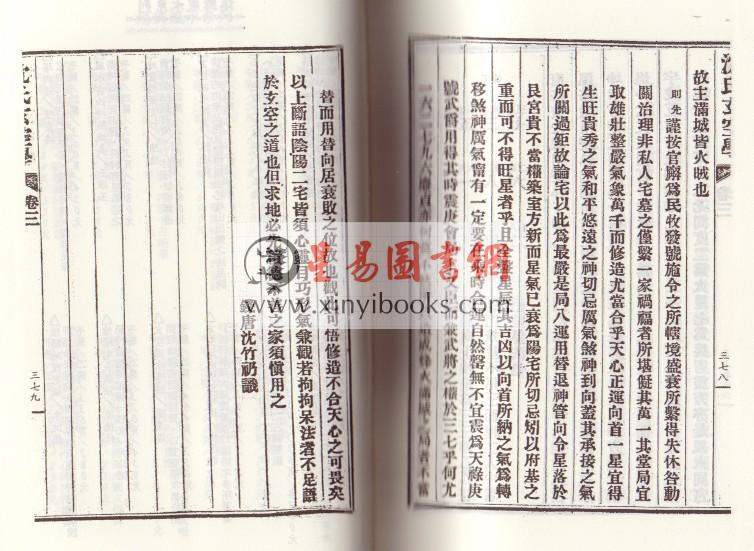 沈氏玄空學
三七八
故主滿城皆火賊也
則先謹按官廨爲民牧發號施令之所轄境盛衰所繫得失休咎動
關治理非私人宅墓之僅繫一家禍福者所堪儗其萬一其堂局宜
取雄壯整嚴氣象萬千而修造尤當合乎天心正運向首一星宜得
生旺貴秀之氣和平悠遠之神切忌厲氣煞神到向蓋其承接之氣
所關過鉅故論宅以此爲最嚴是局八運用替退神管向令星落於
艮宮貴不當權築室方新而星氣已衰爲陽宅所切忌矧以府基之
重而可不得旺星者乎且全盤星辰其吉凶以向首所納之氣爲轉
移煞神厲氣甯有一定要
自然罄無不宜震爲天祿庚
號武爵用得其時震庚會
兼武將之權於三七乎何尤
一六二七九六
替而用替向居衰敗之位故也觀
可悟修造不合天心之可畏矣
以上斷語陰陽二宅皆須心靈目巧
氣兼觀若拘拘呆法者不足語
於玄空之道也但求地必先
之家須愼用之
錢唐沈竹礽識
卷三
三七九
星易圖書網
www.xinyibooks.com